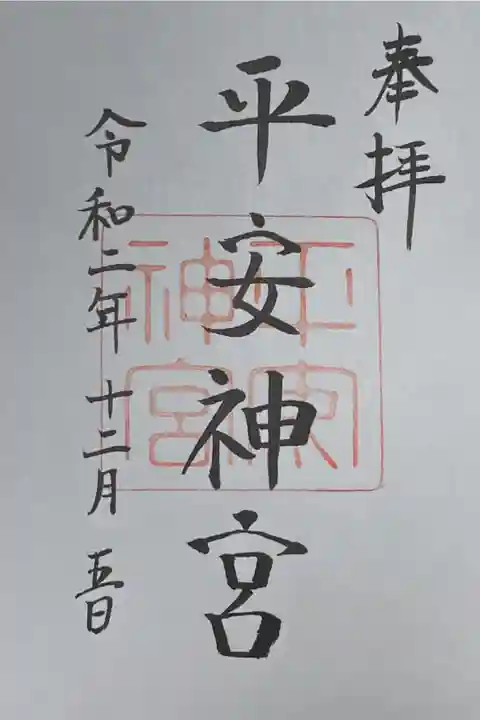 奉拝
平安神宮
平安神宮
令和二年 十二月 五日